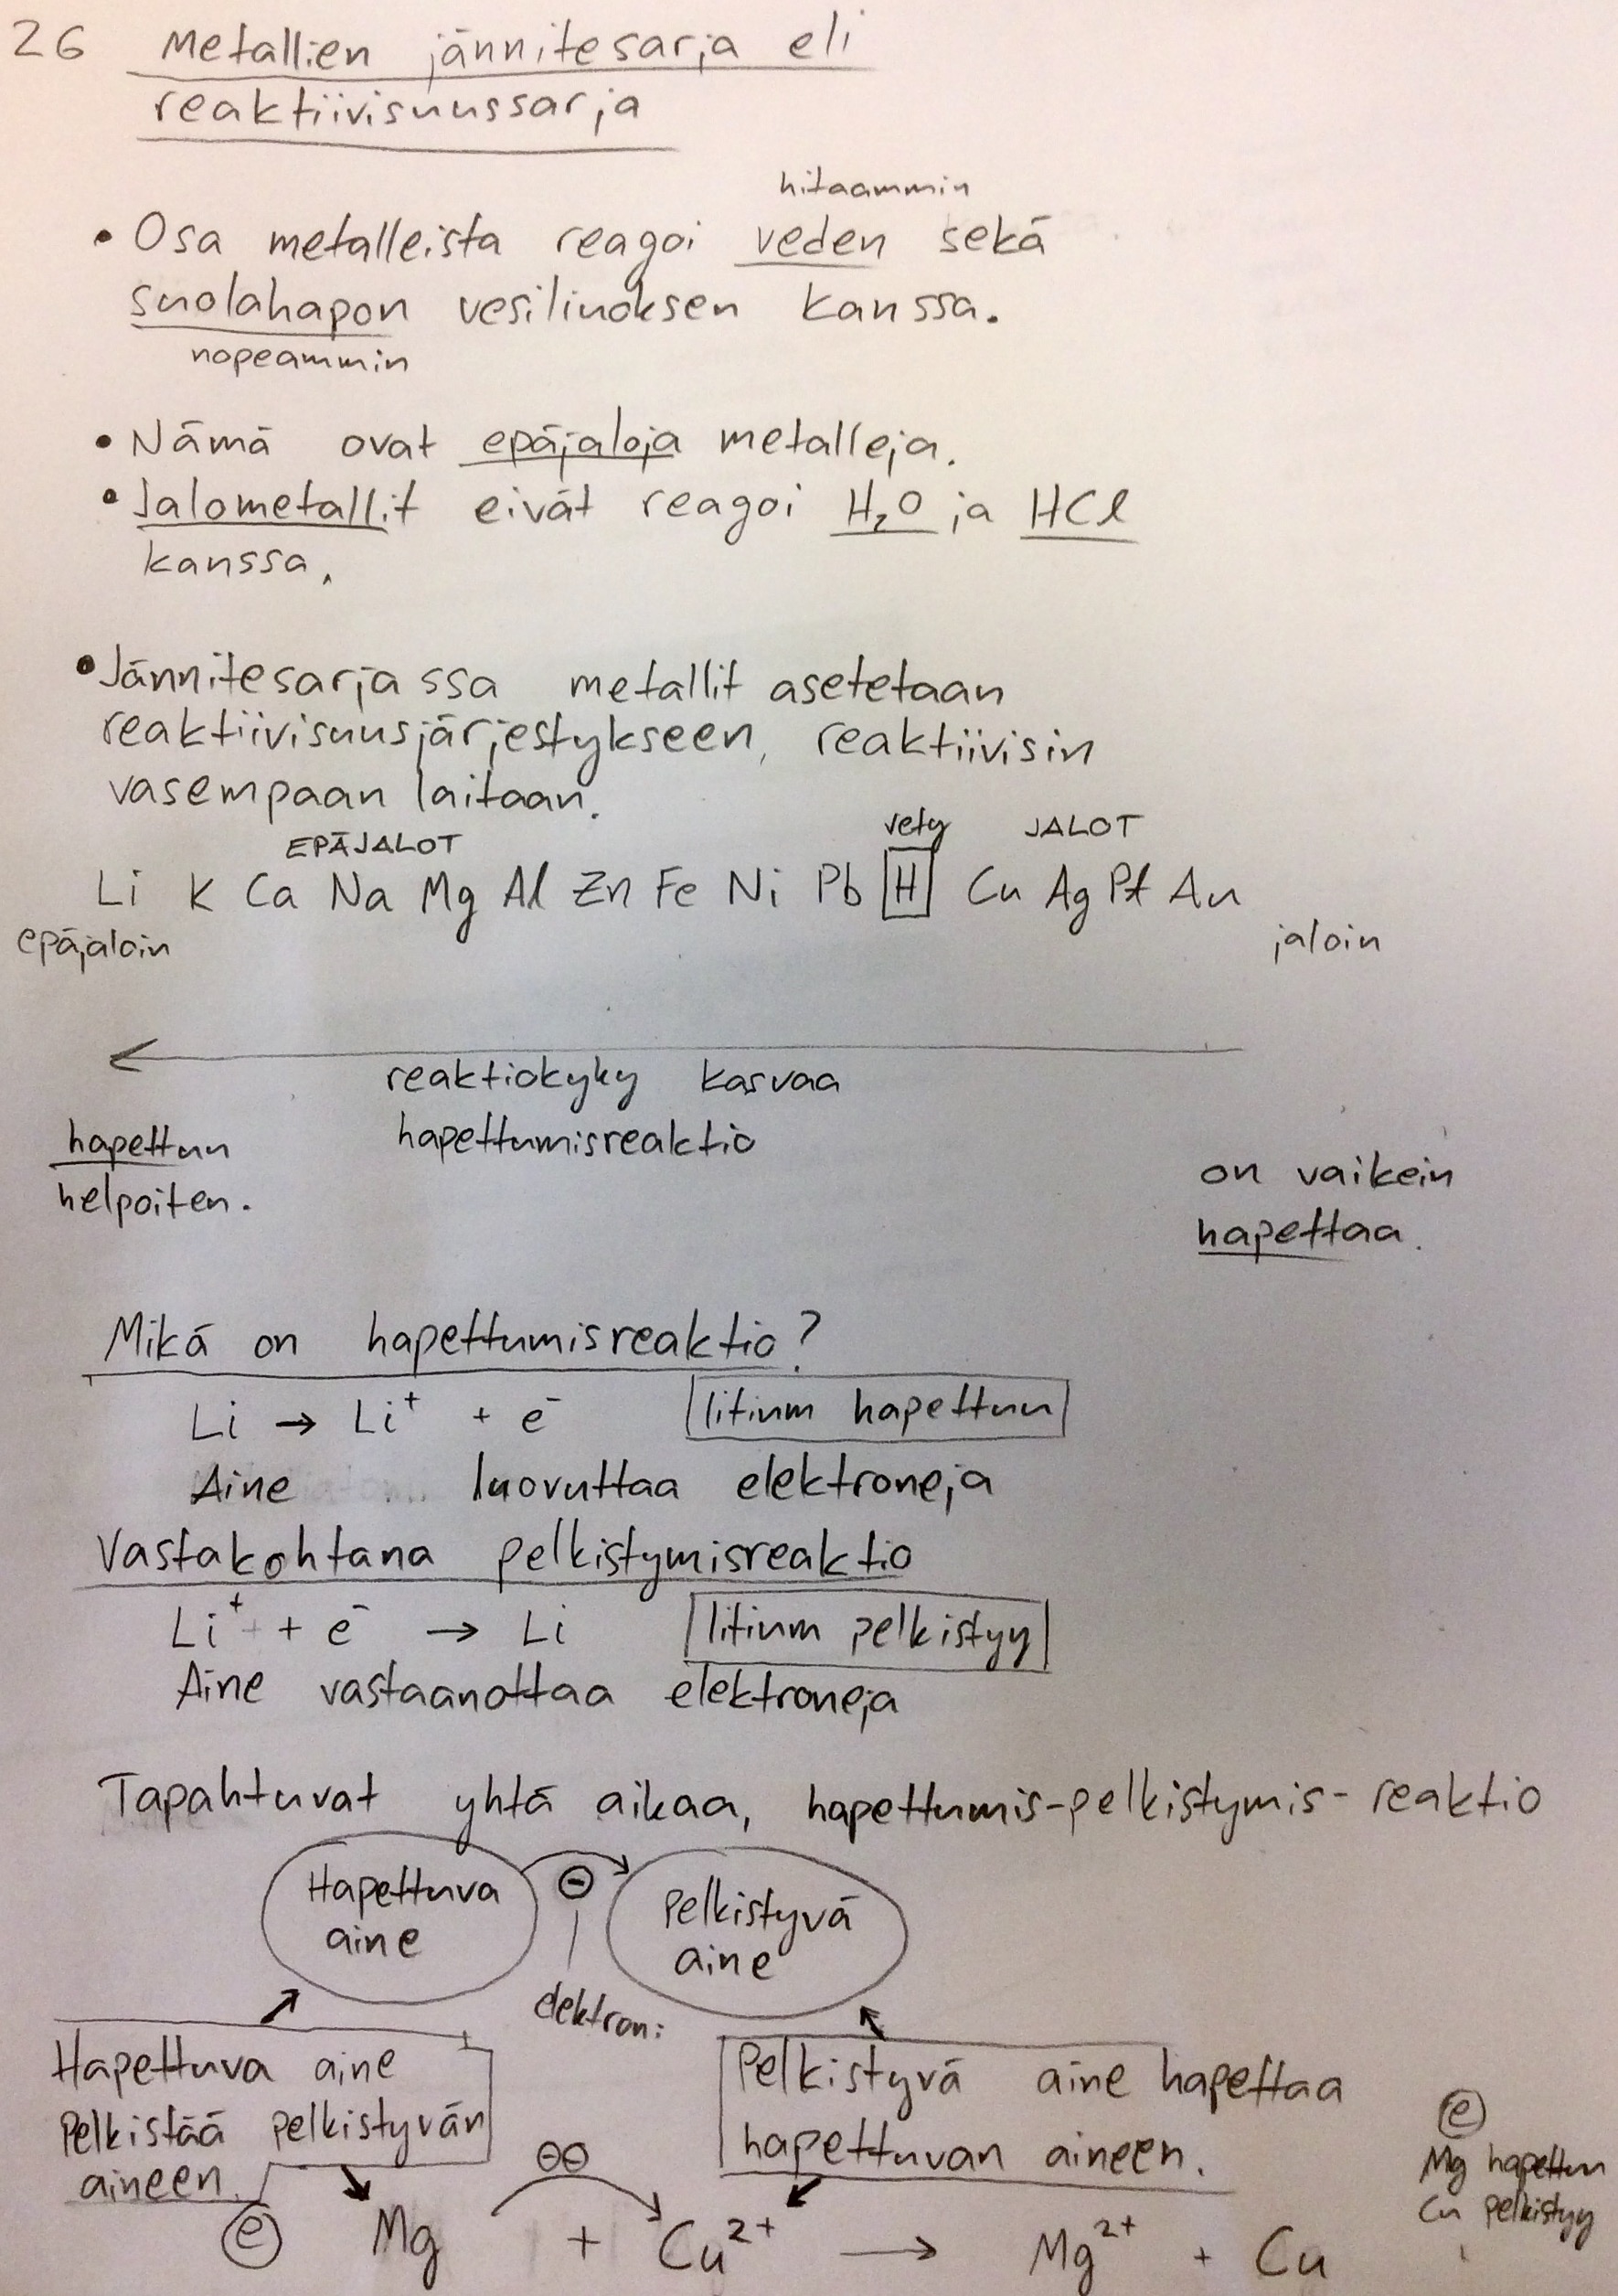 26 Metallien jännitesarja eli
reaktiivisuussarja
hitaammin
• Osa metalleista reagoi veden sekä
suolahapon vesiliuoksen kanssa.
nopeammin
• Nämä ovat epäjaloja metalleja.
• Jalometallit eivät reagoi H₂O ja HCl
kanssa.
• Jännitesarjassa metallit asetetaan
reaktiivisuusjärjestykseen, reaktiivisin
vasempaan laitaan.
EPÄJALOT vety JALOT
Li K Ca Na Mg Al Zn Fe Ni Pb H Cu Ag Pt Au
epäjaloin jaloin
reaktiokyky kasvaa
hapettuu hapettumisreaktio
helpoiten.
on vaikein
hapettaa.
Mikä on hapettumisreaktio?
Li → Li⁺ + e⁻ litium hapettuu
Aine luovuttaa elektroneja
Vastakohtana pelkistymisreaktio
Li⁺ + e⁻ → Li litium pelkistyy
Aine vastaanottaa elektroneja
Tapahtuvat yhtä aikaa, hapettumis-pelkistymis-reaktio
Hapettuva
aine
⊖
Pelkistyvä
aine
elektroni
Hapettuva aine
pelkistää pelkistyvän
aineen.
Pelkistyvä aine hapettaa
hapettuvan aineen.
e
Mg hapettuu
Cu pelkistyy
⊖⊖
e Mg + Cu²⁺ → Mg²⁺ + Cu